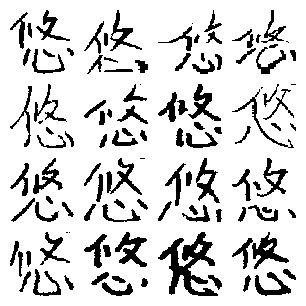 悠悠悠悠
悠悠悠悠
悠悠悠悠
悠悠悠悠